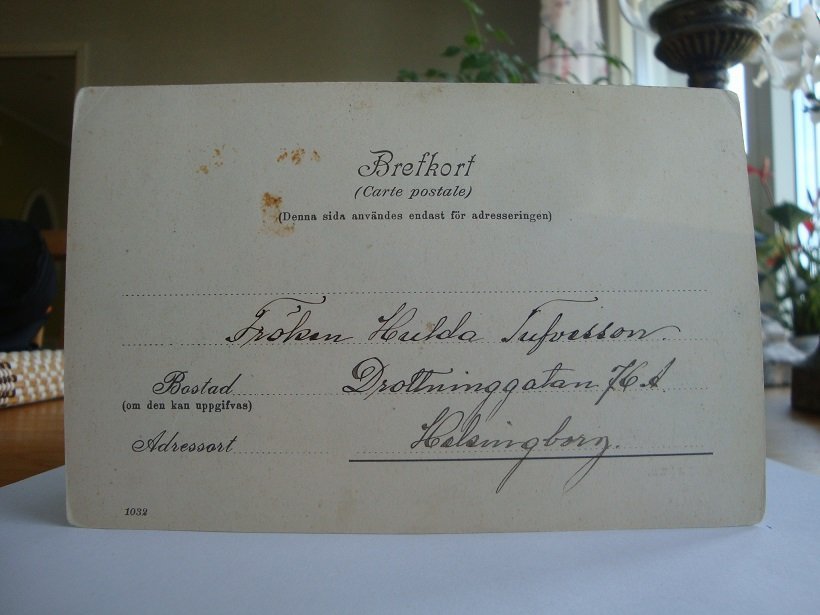 Brefkort
(Carte postale)
(Denna sida användes endast för adresseringen)
Fröken Hulda Tufvesson.
Bostad Drottninggatan 76 A
(om den kan uppgifvas)
Adressort Helsingborg.
1032